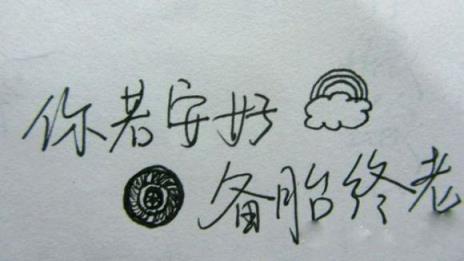 你若安好
备胎终老